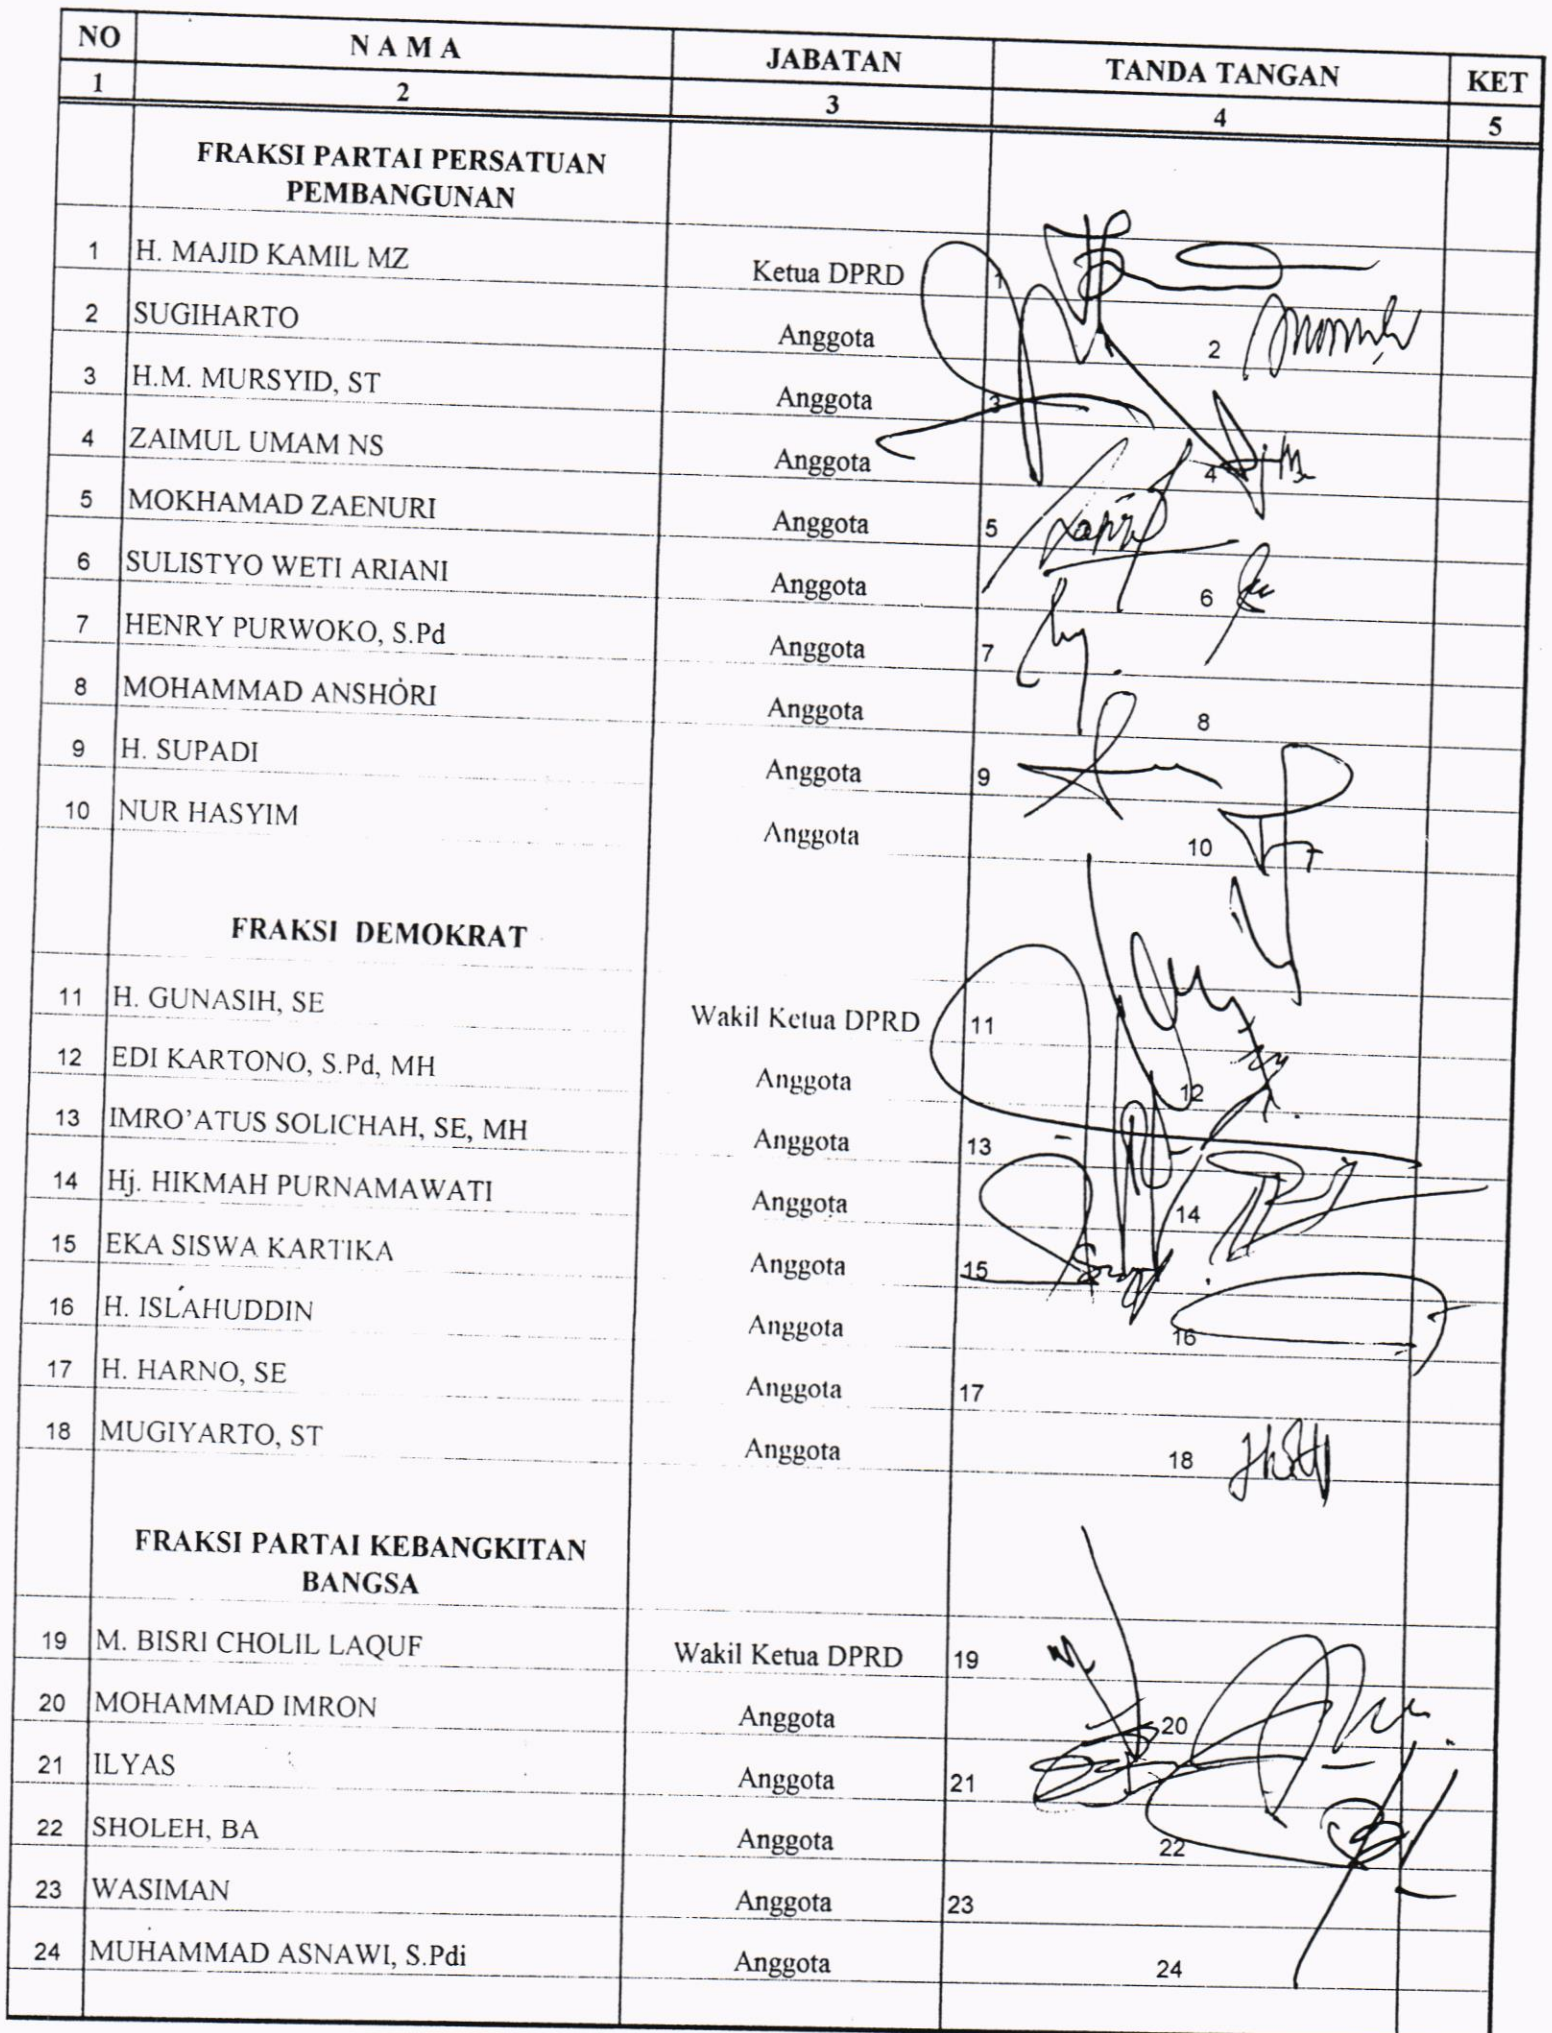 NO N A M A JABATAN TANDA TANGAN KET
1 2 3 4 5
FRAKSI PARTAI PERSATUAN
PEMBANGUNAN
1 H. MAJID KAMIL MZ Ketua DPRD 1
2 SUGIHARTO Anggota 2
3 H.M. MURSYID, ST Anggota 3
4 ZAIMUL UMAM NS Anggota 4
5 MOKHAMAD ZAENURI Anggota 5
6 SULISTYO WETI ARIANI Anggota 6
7 HENRY PURWOKO, S.Pd Anggota 7
8 MOHAMMAD ANSHORI Anggota 8
9 H. SUPADI Anggota 9
10 NUR HASYIM Anggota 10
FRAKSI DEMOKRAT
11 H. GUNASIH, SE Wakil Ketua DPRD 11
12 EDI KARTONO, S.Pd, MH Anggota 12
13 IMRO'ATUS SOLICHAH, SE, MH Anggota 13
14 Hj. HIKMAH PURNAMAWATI Anggota 14
15 EKA SISWA KARTIKA Anggota 15
16 H. ISLAHUDDIN Anggota 16
17 H. HARNO, SE Anggota 17
18 MUGIYARTO, ST Anggota 18
FRAKSI PARTAI KEBANGKITAN
BANGSA
19 M. BISRI CHOLIL LAQUF Wakil Ketua DPRD 19
20 MOHAMMAD IMRON Anggota 20
21 ILYAS Anggota 21
22 SHOLEH, BA Anggota 22
23 WASIMAN Anggota 23
24 MUHAMMAD ASNAWI, S.Pdi Anggota 24